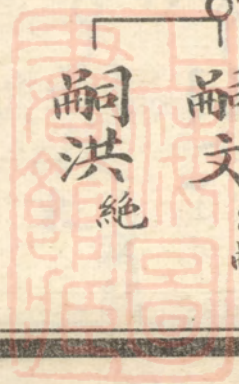 嗣文
嗣洪絶